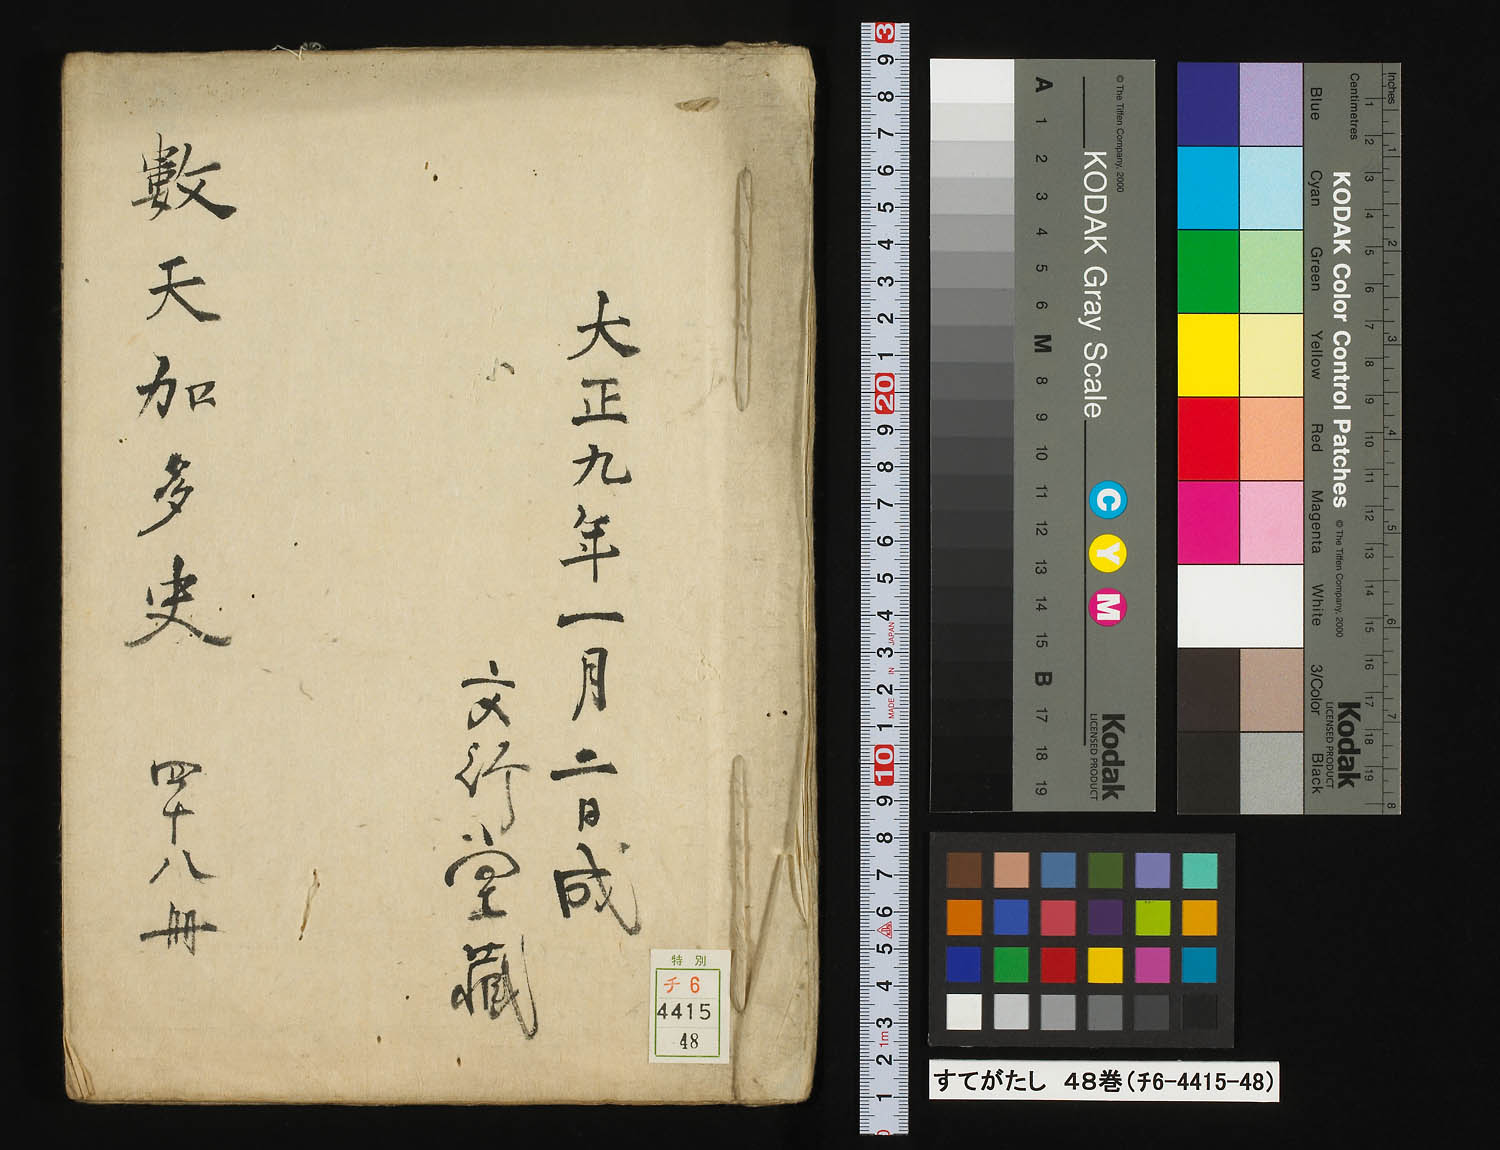 大正九年一月二日成
文行堂蔵
數天加多史 四十八冊
特別
チ6
4415
48
3 9 8 7 6 5 4 3 2 1 20 9 8 7 6 5 4 3 2 1 10 9 8 7 6 5 4 3 2 1
MADE IN JAPAN
1m
© The Tiffen Company, 2000
KODAK Gray Scale
C Y M
Kodak
LICENSED PRODUCT
A 1 2 3 4 5 6 M 8 9 10 11 12 13 14 15 B 17 18 19
Inches 1 2 3 4 5 6 7 8
Centimetres 1 2 3 4 5 6 7 8 9 10 11 12 13 14 15 16 17 18 19
KODAK Color Control Patches
© The Tiffen Company, 2000
Kodak
LICENSED PRODUCT
Blue Cyan Green Yellow Red Magenta White 3/Color Black
すてがたし 48巻(チ6-4415-48)